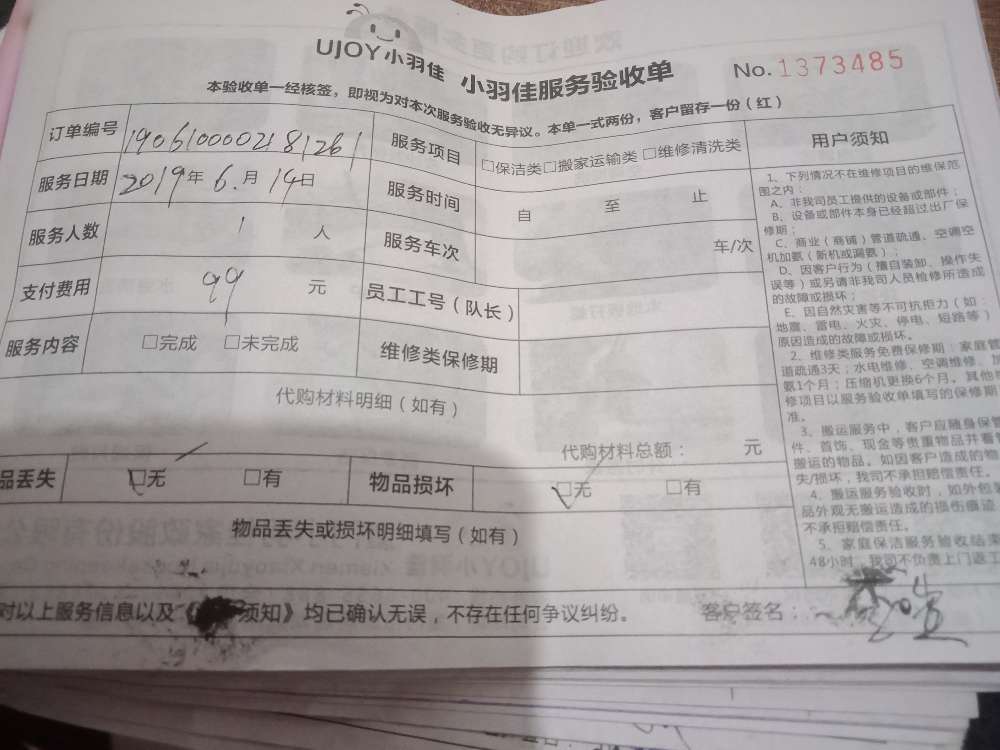 UJOY小羽佳 小羽佳服务验收单 No. 1373485
本验收单一经核签，即视为对本次服务验收无异议。本单一式两份，客户留存一份（红）
订单编号 1906100002181261 服务项目 □保洁类□搬家运输类□维修清洗类
服务日期 2019年6.月14日 服务时间 自 至 止
服务人数 1 人 服务车次 车/次
支付费用 99 元 员工工号（队长）
服务内容 □完成 □未完成 维修类保修期
代购材料明细（如有）
代购材料总额： 元
品丢失 □无 □有 物品损坏 □无 □有
物品丢失或损坏明细填写（如有）
对以上服务信息以及《 须知》均已确认无误，不存在任何争议纠纷。 客户签名：
用户须知
1、下列情况不在维修项目的维保范
围之内：
A、非我司员工提供的设备或部件；
B、设备或部件本身已经超过出厂保
修期；
C、商业（商铺）管道疏通、空调空
机加氨（新机或漏氨）；
D、因客户行为（擅自装卸、操作失
误等）或另请非我司人员检修所造成
的故障或损坏；
E、因自然灾害等不可抗拒力（如：
地震、雷电、火灾、停电、短路等）
原因造成的故障或损坏。
2、维修类服务免费保修期：家庭管
道疏通3天；水电维修、空调维修、加
氨1个月；压缩机更换6个月。其他
修项目以服务验收单填写的保修期
准。
3、搬运服务中，客户应随身保管
件、首饰、现金等贵重物品并看管
搬运的物品。如因客户造成的物
失/损坏，我司不承担赔偿责任。
4、搬运服务验收时，如外包装
品外观无搬运造成的损伤痕迹
不承担赔偿责任。
5、家庭保洁服务验收结束
48小时，我司不负责上门返工